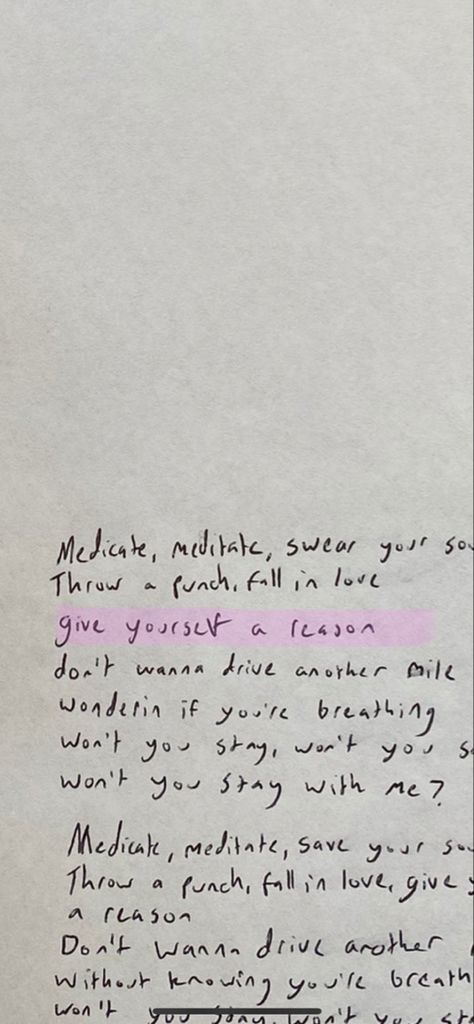 Medicate, meditate, swear your sou
Throw a punch, fall in love
give yourself a reason
don't wanna drive another mile
wonderin if you're breathing
won't you stay, won't you s
won't you stay with me?
Medicate, meditate, save your sou
Throw a punch, fall in love, give y
a reason
Don't wanna drive another
without knowing you're breath
won't you stay, won't you st